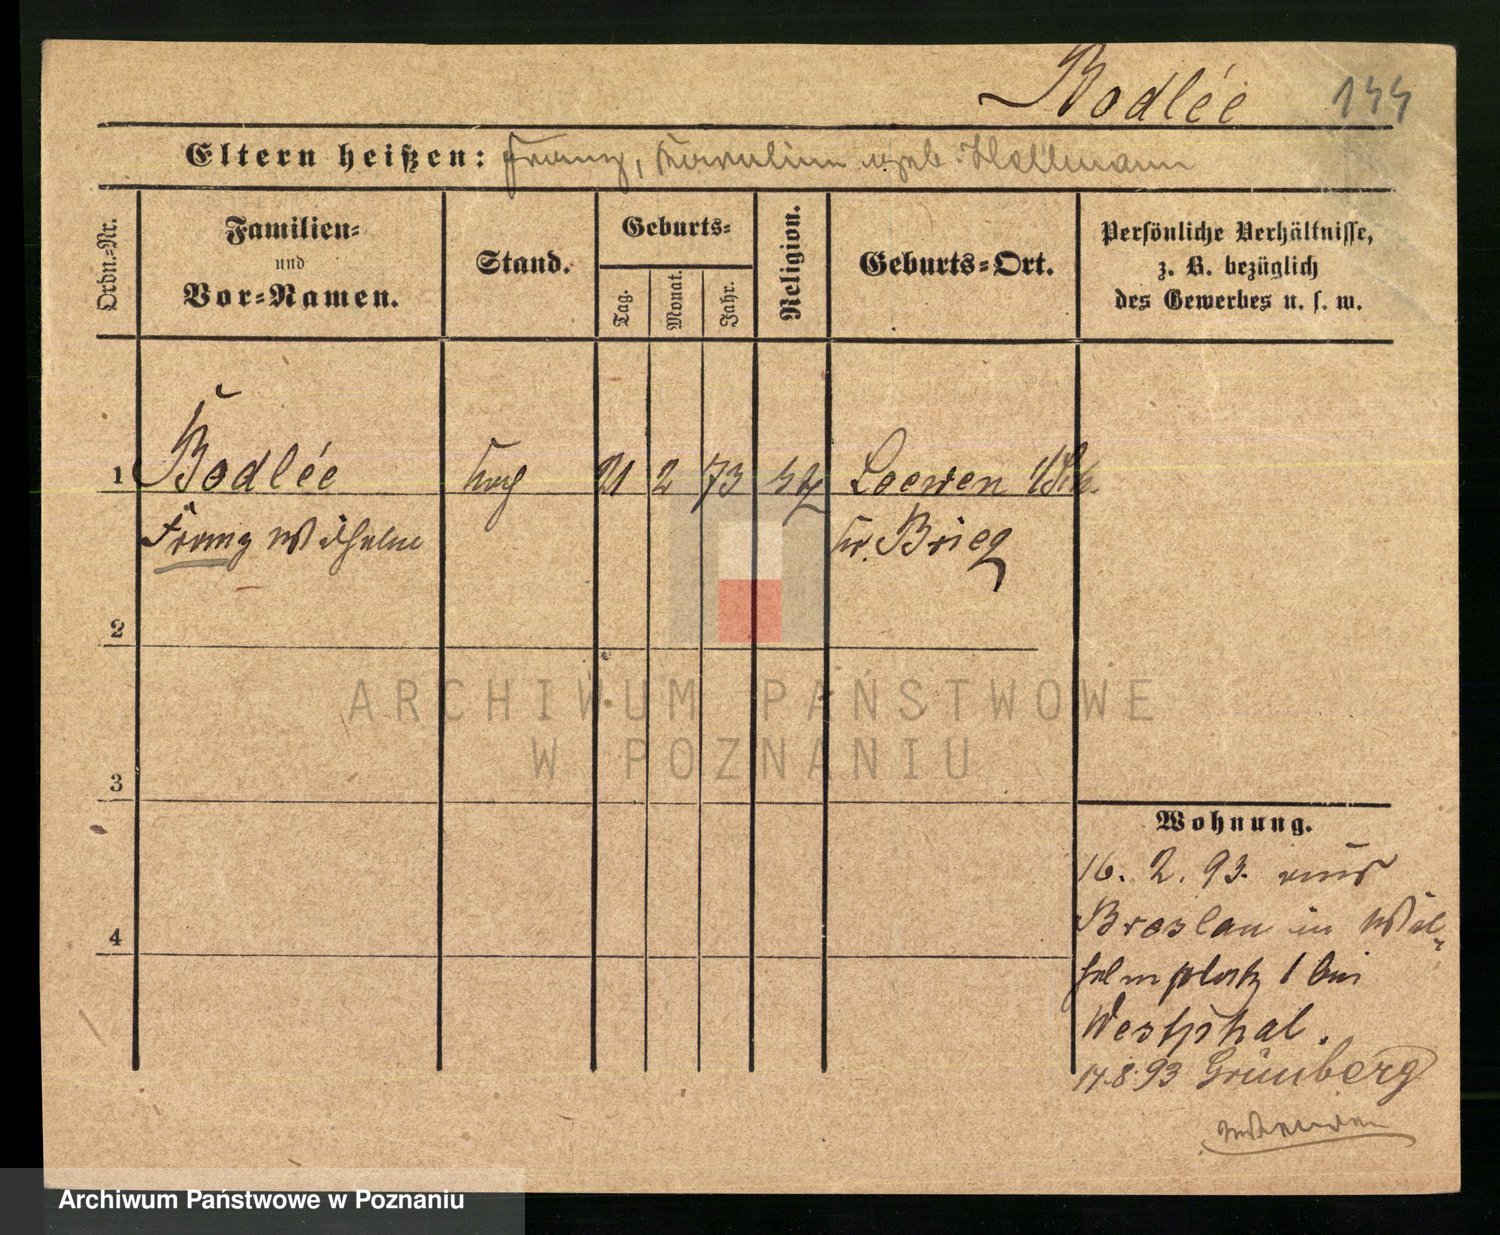 Bodlée 144
Eltern heißen: Franz, Karoline geb. Hollmann
Ordn.-Nr.
Familien-
und
Vor-Namen.
Stand.
Geburts-
Tag.
Monat.
Jahr.
Religion.
Geburts-Ort.
Persönliche Verhältnisse,
z. B. bezüglich
des Gewerbes u. s. w.
1 Bodlée 21 2 73 Loewen
Franz Wilhelm Kr. Brieg
2
3
4
Wohnung.
16. 2. 93. aus
Breslau in Wil-
helmplatz 1 bei
Westphal.
17.8.93 Grünberg
ARCHIWUM PAŃSTWOWE
W POZNANIU
Archiwum Państwowe w Poznaniu